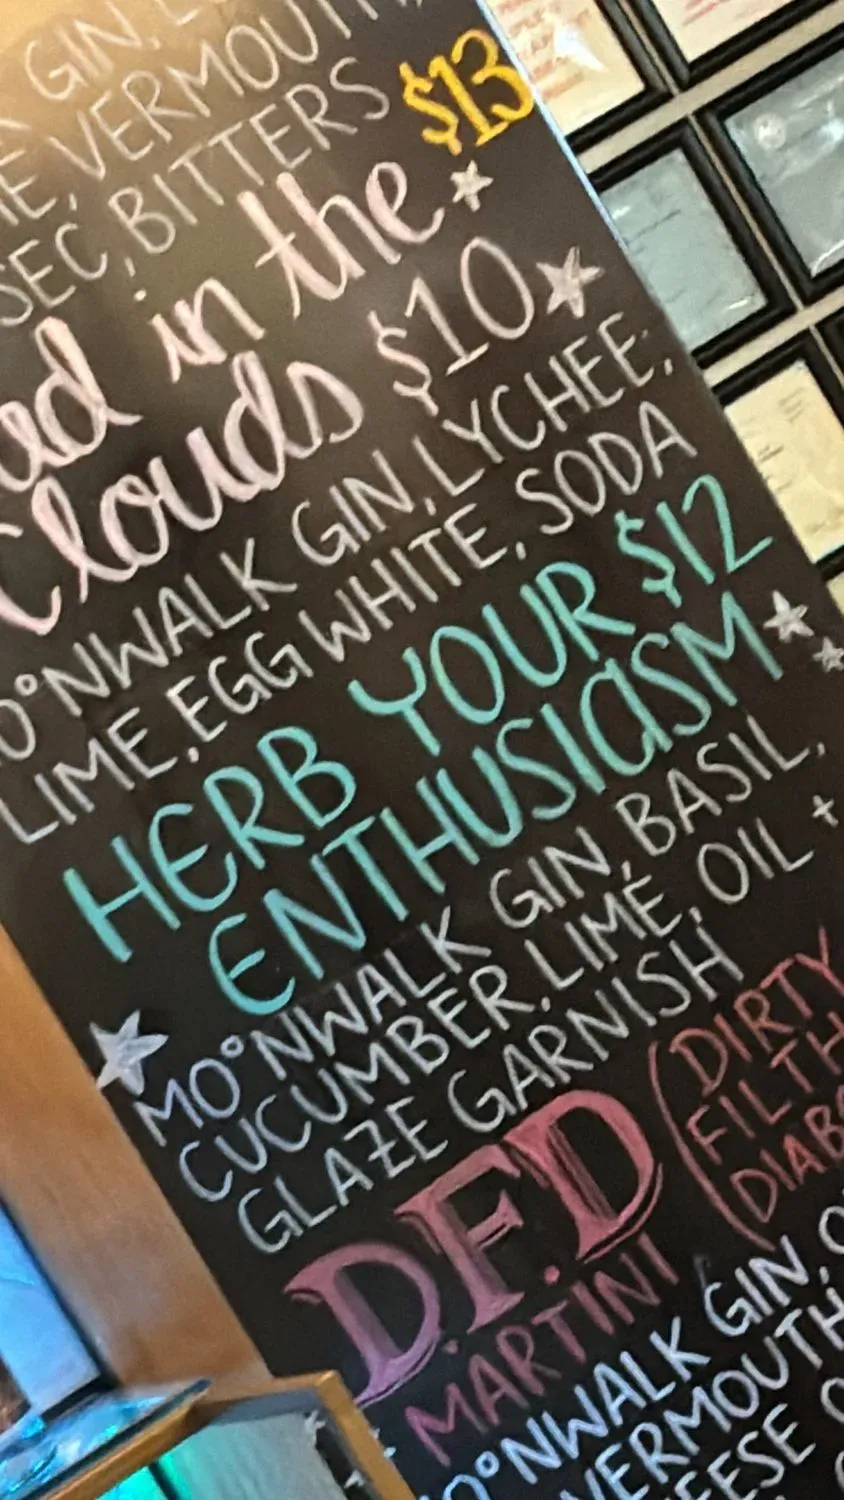 GIN,
VERMOUTH,
SEC, BITTERS $13
in the
Clouds $10
MO°NWALK GIN, LYCHEE,
LIME, EGG WHITE, SODA
HERB YOUR $12
ENTHUSIASM
MO°NWALK GIN, BASIL,
CUCUMBER, LIME, OIL +
GLAZE GARNISH
D.F.D (DIRTY
FILTH
DIAB
MARTINI
MO°NWALK GIN, O
VERMOUTH